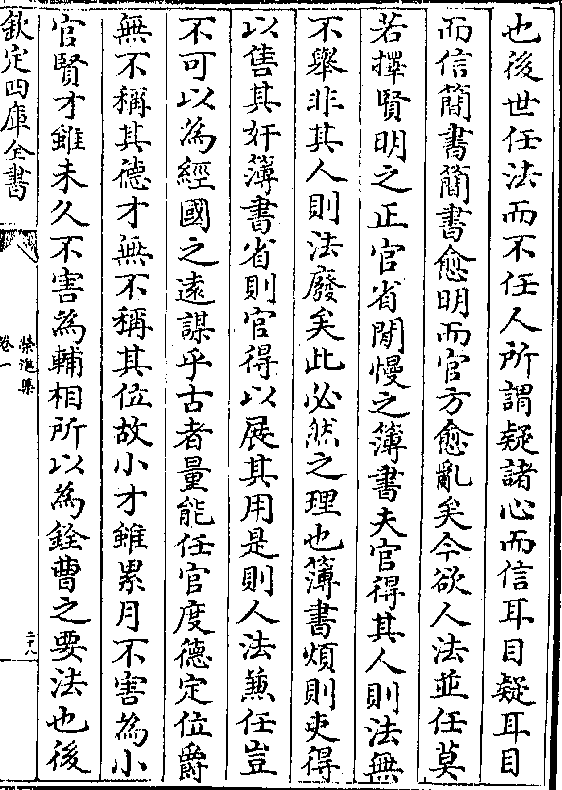 也後世任法而不任人所謂疑諸心而信耳目疑耳目
而信簡書簡書愈明而官方愈亂矣今欲人法並任莫
若擇賢明之正官省閒慢之簿書夫官得其人則法無
不舉非其人則法廢矣此必然之理也簿書煩則吏得
以售其奸簿書省則官得以展其用是則人法兼任豈
不可以為經國之遠謀乎古者量能任官度德定位爵
無不稱其德才無不稱其位故小才雖累月不害為小
官賢才雖未久不害為輔相所以為銓曹之要法也後
欽定四庫全書
卷一
二十八